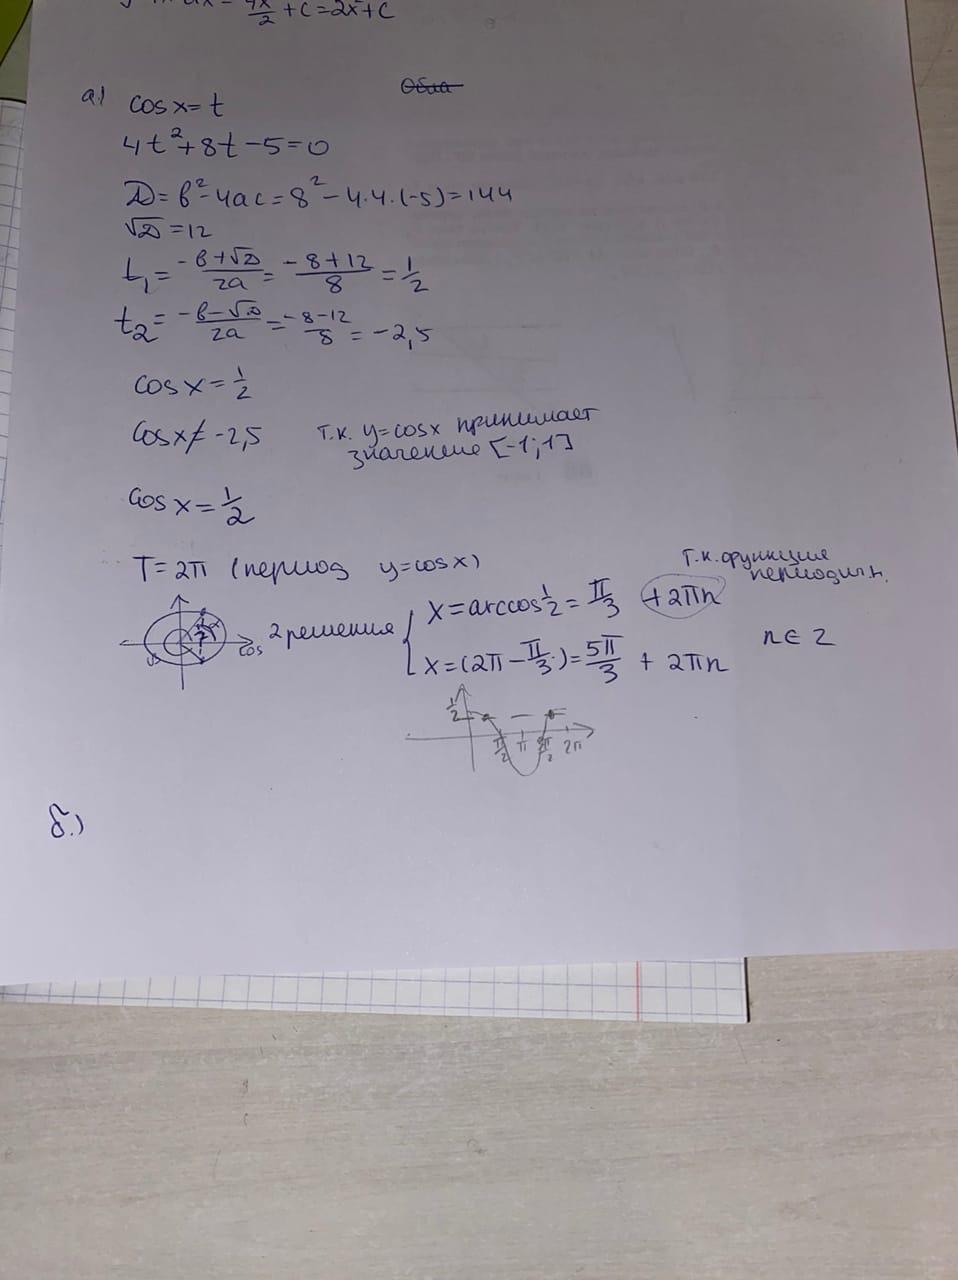 4x/2 + c = 2x + c
Обла
а) cos x = t
4t² + 8t - 5 = 0
D = b² - 4ac = 8² - 4·4·(-5) = 144
√D = 12
t₁ = -b+√D/2a = -8+12/8 = 1/2
t₂ = -b-√D/2a = -8-12/8 = -2,5
cos x = 1/2
cos x ≠ -2,5 т.к. y = cos x принимает
значение [-1;1]
cos x = 1/2
T = 2π (период y = cos x)
т.к. функция
периодичн.
2 решения
x = arccos 1/2 = π/3 + 2πn
x = (2π - π/3) = 5π/3 + 2πn
n ∈ Z
cos
1/2
π/2 π 3π/2 2π
б.)